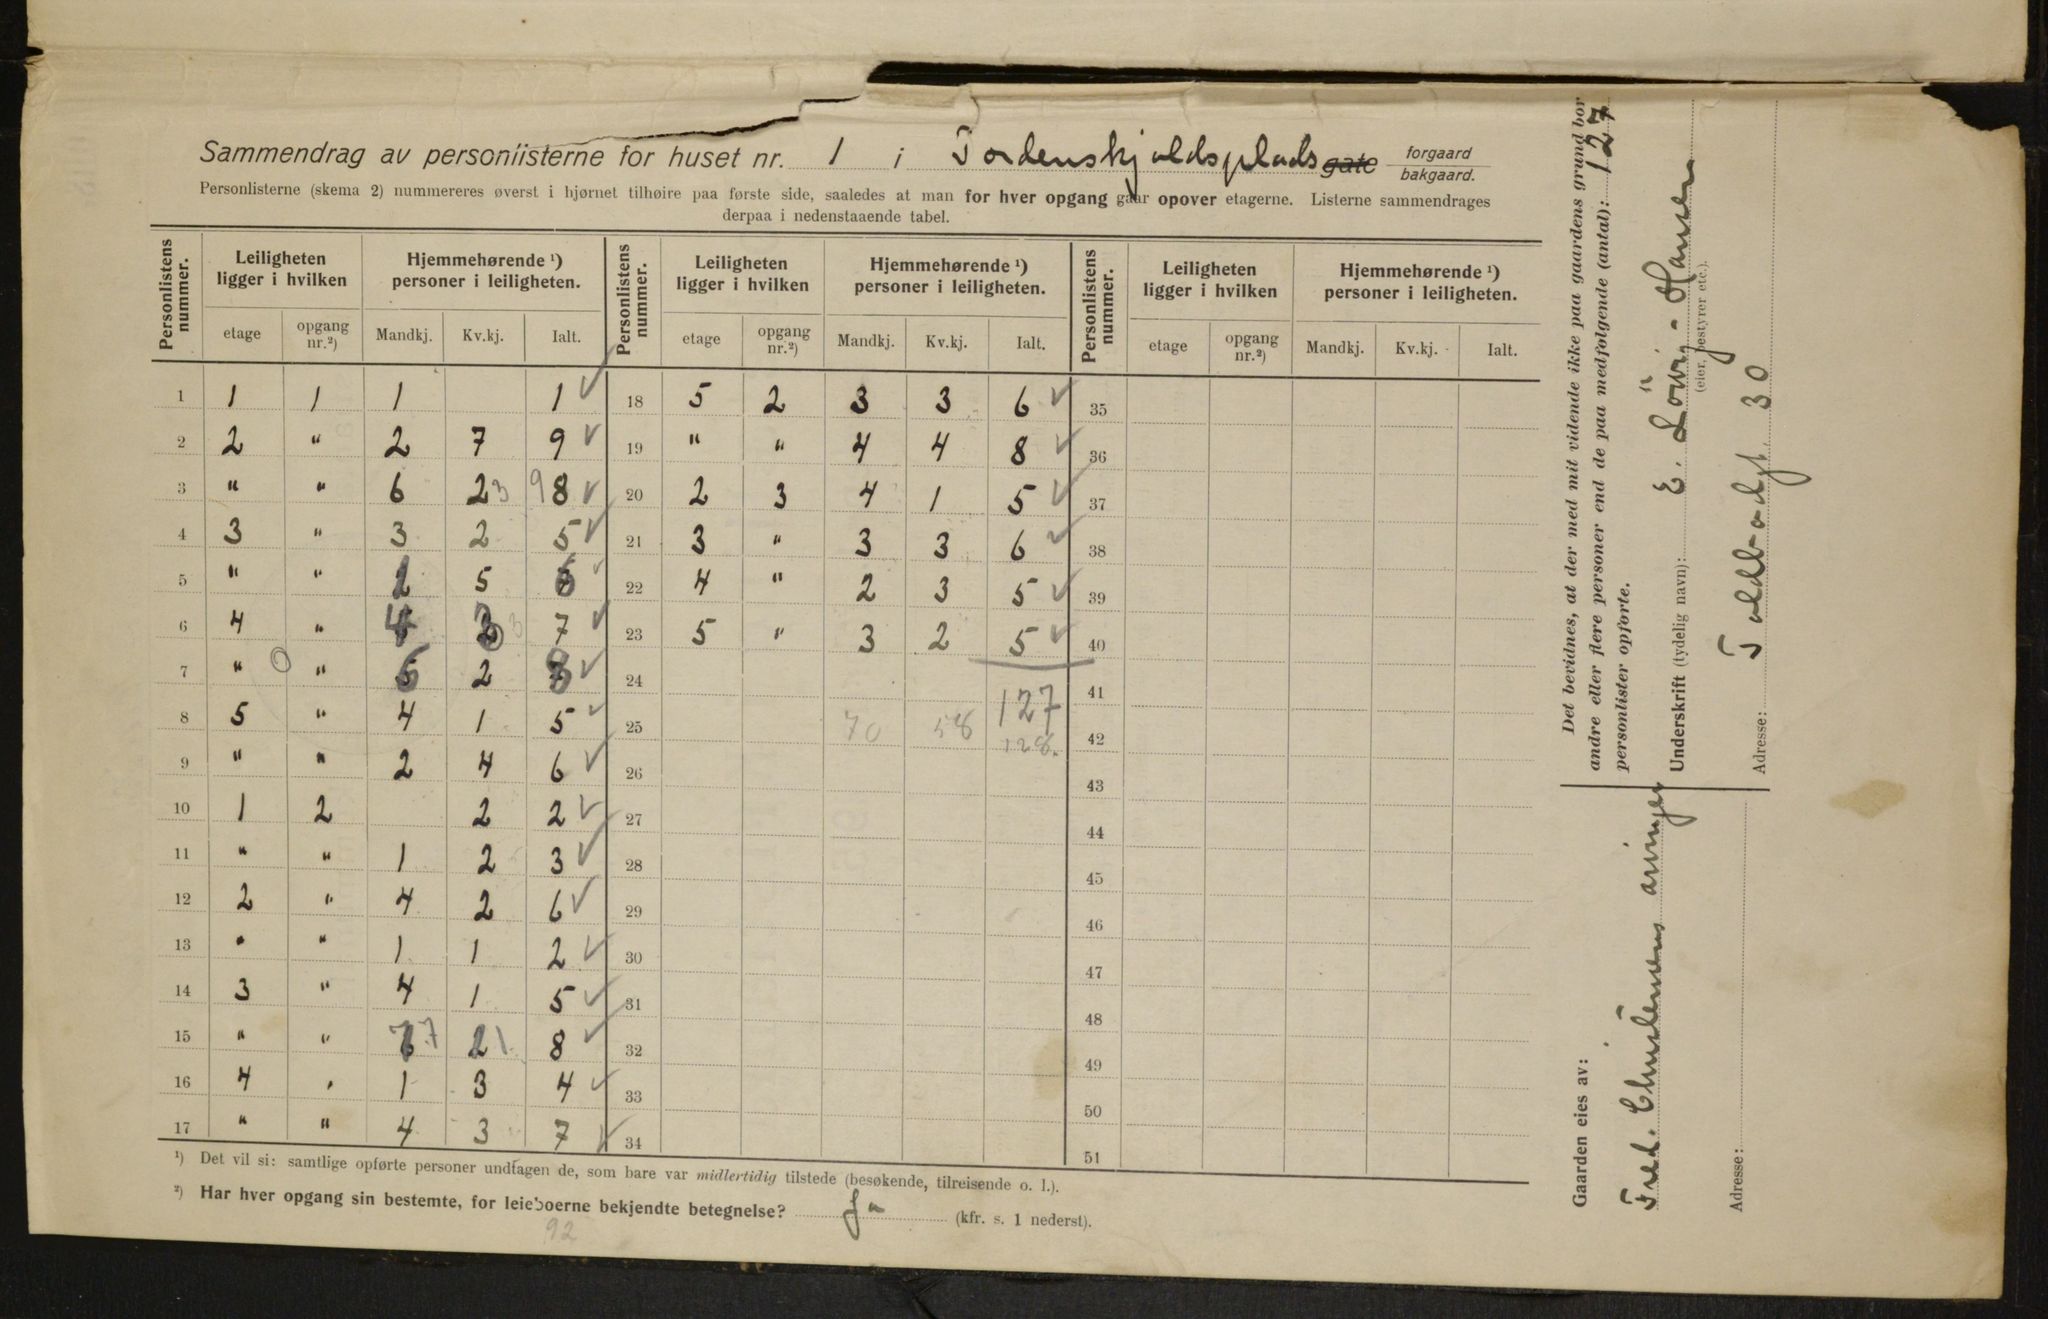 Sammendrag av personlisterne for huset nr. 1 i Tordenskjoldsplads gate forgaard bakgaard.
Personlisterne (skema 2) nummereres øverst i hjørnet tilhøire paa første side, saaledes at man for hver opgang gaar opover etagerne. Listerne sammendrages
derpaa i nedenstaaende tabel.
Personlistens nummer. Leiligheten ligger i hvilken Hjemmehørende ¹) personer i leiligheten. Personlistens nummer. Leiligheten ligger i hvilken Hjemmehørende ¹) personer i leiligheten. Personlistens nummer. Leiligheten ligger i hvilken Hjemmehørende ¹) personer i leiligheten.
etage opgang nr.²) Mandkj. Kv.kj. Ialt. etage opgang nr.²) Mandkj. Kv.kj. Ialt. etage opgang nr.²) Mandkj. Kv.kj. Ialt.
1 1 1 1 1 ✓ 18 5 2 3 3 6 ✓ 35
2 2 " 2 7 9 ✓ 19 " " 4 4 8 ✓ 36
3 " " 6 2 3 9 8 ✓ 20 2 3 4 1 5 ✓ 37
4 3 " 3 2 5 ✓ 21 3 " 3 3 6 ✓ 38
5 " " 1 5 6 ✓ 22 4 " 2 3 5 ✓ 39
6 4 " 4 3 3 7 ✓ 23 5 " 3 2 5 ✓ 40
7 " 0 " 6 2 8 ✓ 24 41
8 5 " 4 1 5 ✓ 25 70 58 127 128. 42
9 " " 2 4 6 ✓ 26 43
10 1 2 2 2 ✓ 27 44
11 " " 1 2 3 ✓ 28 45
12 2 " 4 2 6 ✓ 29 46
13 " " 1 1 2 ✓ 30 47
14 3 " 4 1 5 ✓ 31 48
15 " " 7 7 2 1 8 ✓ 32 49
16 4 " 1 3 4 ✓ 33 50
17 " " 4 3 7 ✓ 34 51
¹) Det vil si: samtlige opførte personer undtagen de, som bare var midlertidig tilstede (besøkende, tilreisende o. l.).
²) Har hver opgang sin bestemte, for leieboerne bekjendte betegnelse? Ja (kfr. s. 1 nederst).
92
Det bevidnes, at der med mit vidende ikke paa gaardens grund bor
andre eller flere personer end de paa medfølgende (antal): 127
personlister opførte.
Underskrift (tydelig navn): E. Lövig-Hansen
(eier, bestyrer etc.).
Adresse: Toldbodgt. 30
Gaarden eies av:
Fred. Christensens arvinger
Adresse: